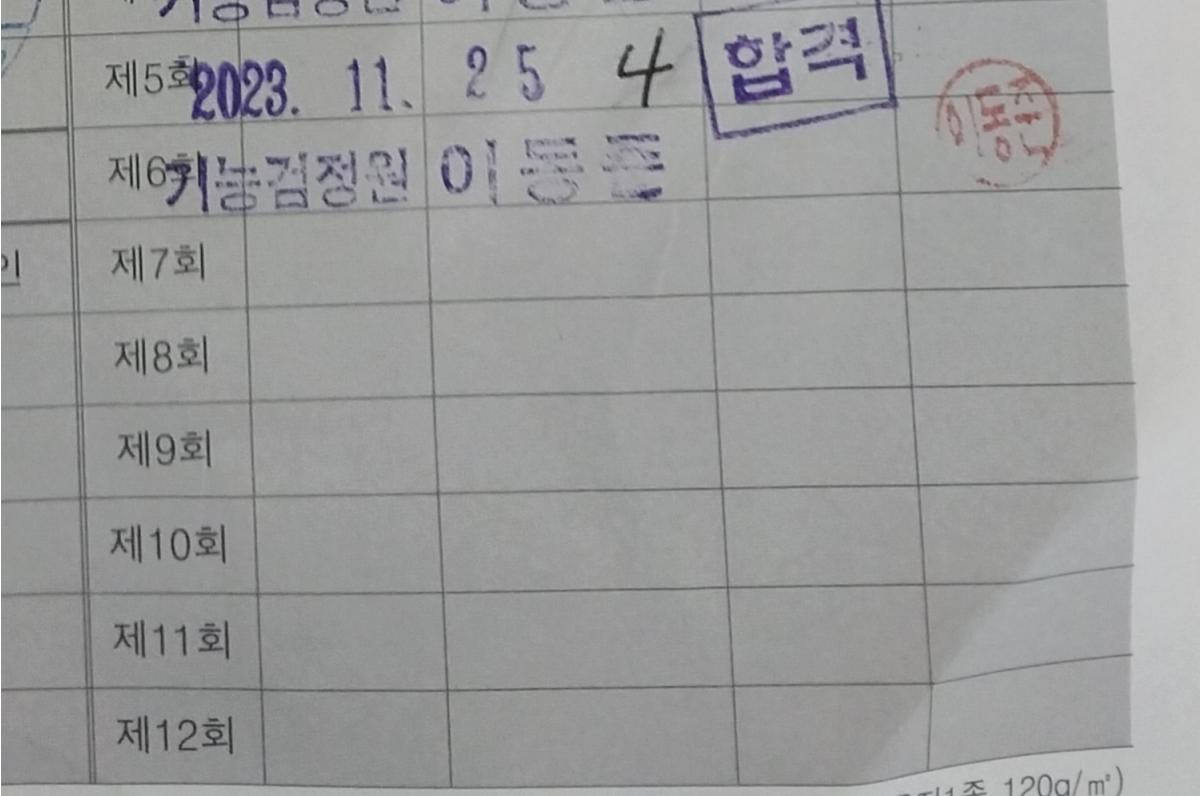 기능검정원 이
제5회 2023. 11. 25 4 합격
제6회 기능검정원 이동준
이동준
인 제7회
제8회
제9회
제10회
제11회
제12회
1종 120g/㎡)